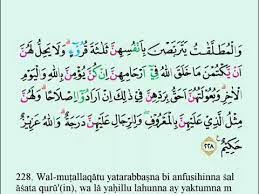 وَالْمُطَلَّقٰتُ يَتَرَبَّصْنَ بِاَنْفُسِهِنَّ ثَلٰثَةَ قُرُوْۤءٍۗ وَلَا يَحِلُّ لَهُنَّ
اَنْ يَّكْتُمْنَ مَا خَلَقَ اللّٰهُ فِيْٓ اَرْحَامِهِنَّ اِنْ كُنَّ يُؤْمِنَّ بِاللّٰهِ وَالْيَوْمِ
الْاٰخِرِۗ وَبُعُوْلَتُهُنَّ اَحَقُّ بِرَدِّهِنَّ فِيْ ذٰلِكَ اِنْ اَرَادُوْٓا اِصْلَاحًاۗ وَلَهُنَّ
مِثْلُ الَّذِيْ عَلَيْهِنَّ بِالْمَعْرُوْفِۖ وَلِلرِّجَالِ عَلَيْهِنَّ دَرَجَةٌ ۗ وَاللّٰهُ عَزِيْزٌ
حَكِيْمٌ ࣖ ٢٢٨
228. Wal-muṭallaqātu yatarabbaṣna bi anfusihinna ṡal
āṡata qurū'(in), wa lā yaḥillu lahunna ay yaktumna m